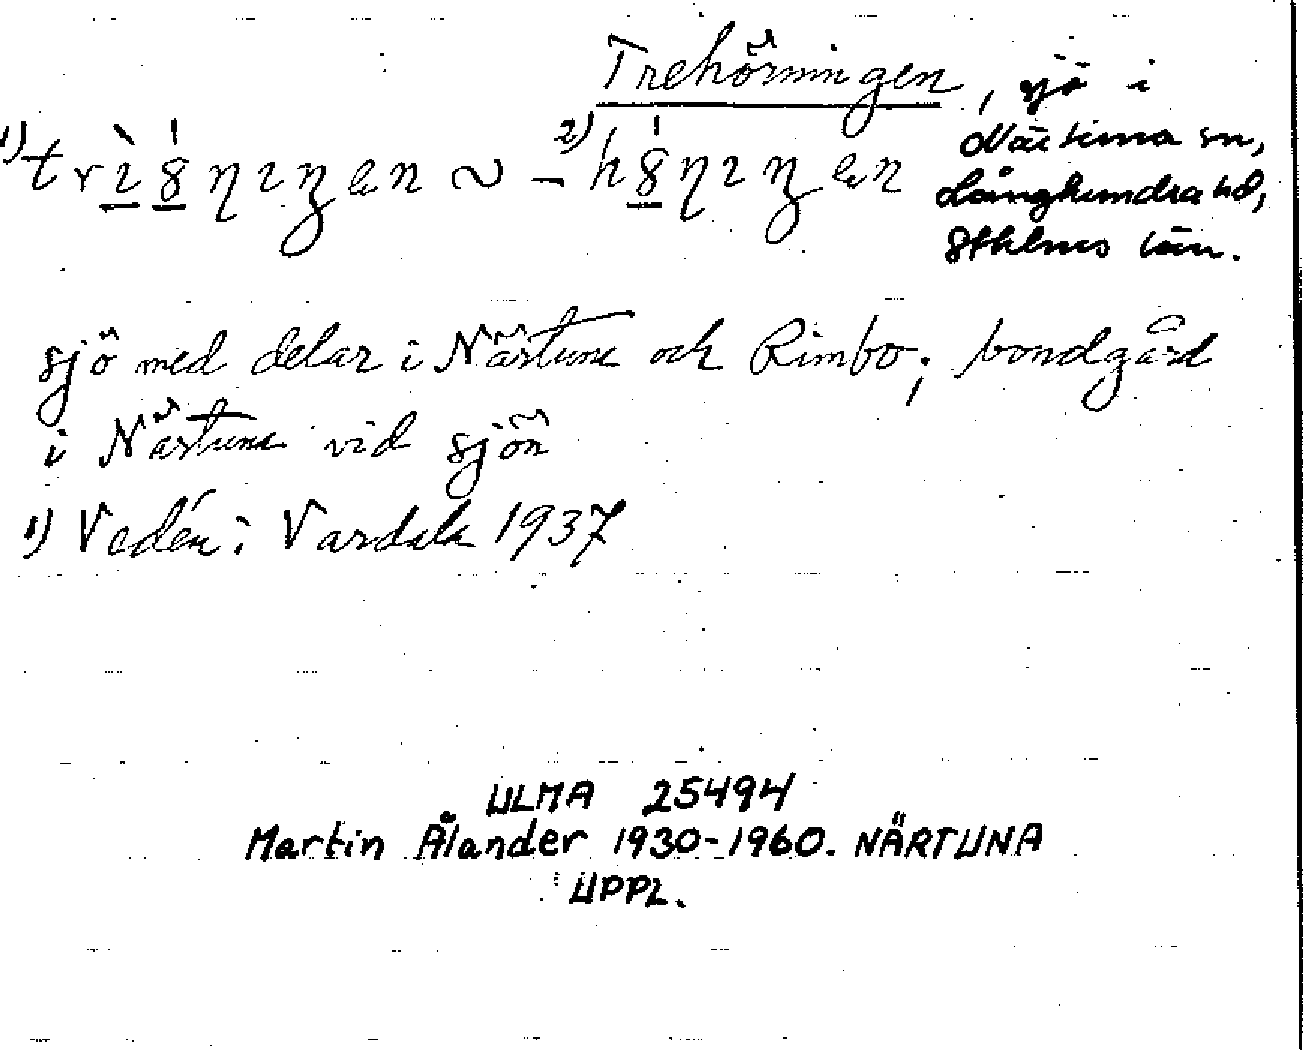 Trehörningen, sjö i
Närtuna sn,
Långhundra hd,
Sthlms län.
sjö med delar i Närtuna och Rimbo; bondgård
i Närtuna vid sjön
1) Vedén i Vardala 1937
ULMA 25494
Martin Ålander 1930-1960. NÄRTUNA
UPPL.